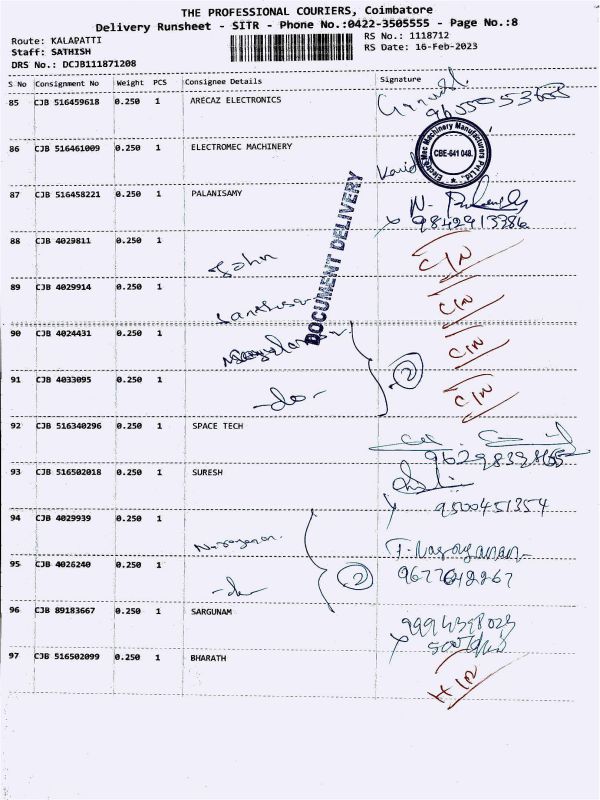 THE PROFESSIONAL COURIERS, Coimbatore
Delivery Runsheet - SITR - Phone No.:0422-3505555 - Page No.:8
Route: KALAPATTI
RS No.: 1118712
Staff: SATHISH
RS Date: 16-Feb-2023
DRS No.: DCJB111871208
S No Consignment No Weight PCS Consignee Details Signature
85 CJB 516459618 0.250 1 ARECAZ ELECTRONICS
86 CJB 516461009 0.250 1 ELECTROMEC MACHINERY
Electro Mec Machinery Manufacturers Pvt Ltd.
CBE-641 048.
87 CJB 516458221 0.250 1 PALANISAMY
9842913286
DOCUMENT DELIVERY
88 CJB 4029811 0.250 1 John C/N
89 CJB 4029914 0.250 1 C/N
90 CJB 4024431 0.250 1 C/N
91 CJB 4033095 0.250 1 -do- 2 C/N
92 CJB 516340296 0.250 1 SPACE TECH
93 CJB 516502018 0.250 1 SURESH
9500451354
94 CJB 4029939 0.250 1 Narayanan T. Narayanan
95 CJB 4026240 0.250 1 -do- 2
96 CJB 89183667 0.250 1 SARGUNAM
97 CJB 516502099 0.250 1 BHARATH